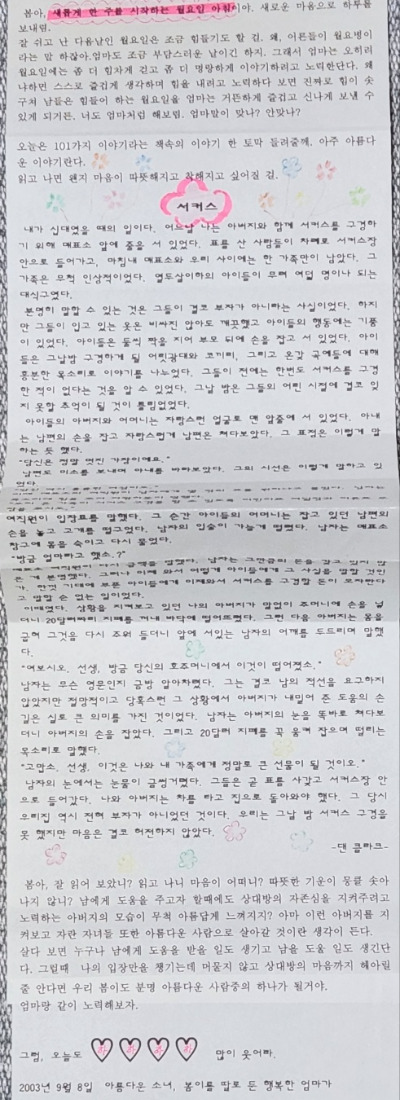 봄아, 새롭게 한 주를 시작하는 월요일 아침이야. 새로운 마음으로 하루를
보내렴.
잘 쉬고 난 다음날인 월요일은 조금 힘들기도 할 걸. 왜, 어른들이 월요병이
라는 말 하잖아.엄마도 조금 부담스러운 날이긴 하지. 그래서 엄마는 오히려
월요일에는 좀 더 힘차게 걷고 좀 더 명랑하게 이야기하려고 노력하한단다. 왜
냐하면 스스로 즐겁게 생각하며 힘을 내려고 노력하다 보면 진짜로 힘이 솟
구쳐 남들은 힘들어 하는 월요일을 엄마는 거뜬하게 즐겁고 신나게 보낼 수
있게 되거든. 너도 엄마처럼 해보렴. 엄마말이 맞나? 안맞나?
오늘은 101가지 이야기라는 책속의 이야기 한 토막 들려줄께. 아주 아름다
운 이야기란다.
읽고 나면 왠지 마음이 따뜻해지고 착해지고 싶어질 걸.
서커스
내가 십대였을 때의 일이다. 어느날 나는 아버지와 함께 서커스를 구경하
기 위해 매표소 앞에 줄을 서 있었다. 표를 산 사람들이 차례로 서커스장
안으로 들어가고, 마침내 매표소와 우리 사이에는 한 가족만이 남았다. 그
가족은 무척 인상적이었다. 열두살이하의 아이들이 무려 여덟 명이나 되는
대식구였다.
분명히 말할 수 있는 것은 그들이 결코 부자가 아니라는 사실이었다. 하지
만 그들이 입고 있는 옷은 비싸진 않아도 깨끗했고 아이들의 행동에는 기품
이 있었다. 아이들은 둘씩 짝을 지어 부모 뒤에 손을 잡고 서 있었다. 아이
들은 그날밤 구경하게 될 어릿광대와 코끼리, 그리고 온갖 곡예들에 대해
흥분한 목소리로 이야기를 나누었다. 그들이 전에는 한번도 서커스를 구경
한 적이 없다는 것을 알 수 있었다. 그날 밤은 그들의 어린 시절에 결코 잊
지 못할 추억이 될 것이 틀림없었다.
아이들의 아버지와 어머니는 자랑스런 얼굴로 맨 앞줄에 서 있었다. 아내
는 남편의 손을 잡고 자랑스럽게 남편을 쳐다보았다. 그 표정은 이렇게 말
하는 듯 했다.
"당신은 정말 멋진 가장이에요."
남편도 미소를 보내며 아내를 바라보았다. 그의 시선은 이렇게 말하고 있
었다.
여직원이 입장료를 말했다. 그 순간 아이들의 어머니는 잡고 있던 남편의
손을 놓고 고개를 떨구었다. 남자의 입술이 가늘게 떨렸다. 남자는 매표소
창구에 몸을 숙이고 다시 물었다.
"방금 얼마라고 했소.?"
은 게 분명했다. 그러나 이제 와서 어떻게 아이들에게 그 사실을 말할 것인
가. 한껏 기대에 부푼 아이들에게 이제와서 서커스를 구경할 돈이 모자란다
고 말할 순 없는 일이었다.
이때였다. 상황을 지켜보고 있던 나의 아버지가 말없이 주머니에 손을 넣
더니 20달러짜리 지폐를 꺼내 바닥에 떨어뜨렸다. 그런 다음 아버지는 몸을
굽혀 그것을 다시 주워 들더니 앞에 서있는 남자의 어깨를 두드리며 말했
다.
"여보시오, 선생, 방금 당신의 호주머니에서 이것이 떨어졌소."
남자는 무슨 영문인지 금방 알아차렸다. 그는 결코 남의 적선을 요구하지
않았지만 절망적이고 당혹스런 그 상황에서 아버지가 내밀어 준 도움의 손
길은 실로 큰 의미를 가진 것이었다. 남자는 아버지의 눈을 똑바로 쳐다보
더니 아버지의 손을 잡았다. 그리고 20달러 지폐를 꼭 움켜 잡으며 떨리는
목소리로 말했다.
"고맙소, 선생, 이것은 나와 내 가족에게 정말로 큰 선물이 될 것이오."
남자의 눈에서는 눈물이 글썽거렸다. 그들은 곧 표를 사갖고 서커스장 안
으로 들어갔다. 나와 아버지는 차를 타고 집으로 돌아와야 했다. 그 당시
우리집 역시 전혀 부자가 아니었던 것이다. 우리는 그날 밤 서커스 구경을
못 했지만 마음은 결코 허전하지 않았다.
-댄 클라크-
봄아, 잘 읽어 보았니? 읽고 나니 마음이 어떠니? 따뜻한 기운이 뭉클 솟아
나지 않니? 남에게 도움을 주고자 할때에도 상대방의 자존심을 지켜주려고
노력하는 아버지의 모습이 무척 아름답게 느껴지지? 아마 이런 아버지를 지
켜보고 자란 자녀들 또한 아름다운 사람으로 살아갈 것이란 생각이 든다.
살다 보면 누구나 남에게 도움을 받을 일도 생기고 남을 도울 일도 생긴단
다. 그럴때 나의 입장만을 챙기는데 머물지 않고 상대방의 마음까지 헤아릴
줄 안다면 우리 봄이도 분명 아름다운 사람중의 하나가 될거야.
엄마랑 같이 노력해보자.
그럼, 오늘도 하 하 하 하 많이 웃어라.
2003년 9월 8일 아름다운 소녀, 봄이를 딸로 둔 행복한 엄마가